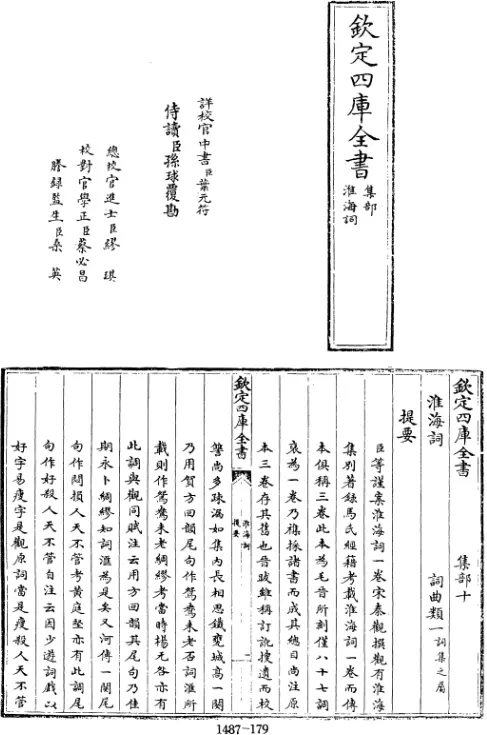 欽定四庫全書
集部
淮海詞
詳校官中書臣葉元符
侍讀臣孫球覆勘
總校官進士臣繆琪
校對官學正臣蔡必昌
謄錄監生臣桑英
欽定四庫全書 集部十
淮海詞 詞曲類一詞集之屬
提要
臣等謹案淮海詞一卷宋秦觀撰觀有淮海
集別著錄馬氏經籍考載淮海詞一卷而傳
本俱稱三卷此本為毛晉所刻僅八十七調
裒為一卷乃雜採諸書而成其總目尚注原
本三卷存其舊也晉跋雖稱訂訛搜遺而校
欽定四庫全書
淮海詞
提要
二
讐尚多疎漏如集內長相思鐵甕城高一闋
乃用賀方回韻尾句作鴛鴦未老否詞滙所
載則作鴛鴦未老綢繆考當時楊无咎亦有
此調與觀同賦注云用方回韻其尾句乃佳
期永卜綢繆知詞滙為是矣又河傳一闋尾
句作悶損人天不管考黃庭堅亦有此調尾
句作好殺人天不管自注云因少游詞戲以
好字易瘦字是觀原詞當是瘦殺人天不管
1487-179